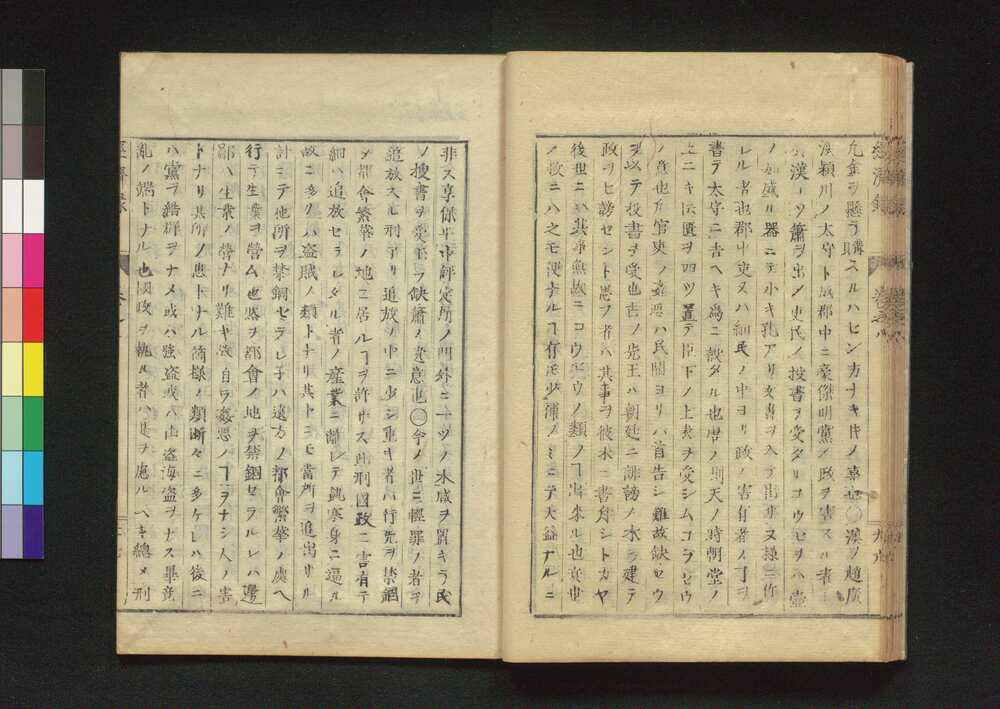 九金ヲ懸ラ購スルハセン方ナキ時ノ事也〇漢ノ趙廣
漢潁川ノ太守ト成郡中ニ豪傑明黨ノ政ヲ害スル者
漢ノ蕭ヲ出メ吏民ノ投書ヲ受タリコウセヲハ壷
ノ如成ル器ニテ小キ孔アリ文書ヲ入テ出サヌ様ニ作
レル者也郡中吏又ハ細民ノ中ヨリ政ノ害有者ノヿヲ
書テ太守ニ告ヘキ爲ニ設タル也唐ノ則天ノ時朝堂ノ
上ニキ匱ヲ四ツ置テ臣下ノ上表ヲ受シムコラセウ
ノ意也官吏ノ姦悪ハ民間ヨリハ首告シ難故缺セウ
ヲ以テ投書ヲ受也古ノ先王ハ朝廷ニ誹謗ノ木ヲ建テ
政ヲヒ謗セント思フ者ハ其事ヲ彼木ニ書付シトカヤ
後世ニハ其事無故ニコウセウノ類ノヿ出来ル也衰世
ノ政ニハ之モ便ナルヿ有モ少補ノミニテ大益ナルニ
非ス享保年中評定所ノ門外ニ一ツノ木咸ヲ置キラ民
ノ投書ヲ受玉フ缺蕭ノ遺意也〇今ノ世ニ輕罪ノ者ヲ
追放スル刑アリ追放ノ中ニ少シ重キ者ハ行先ヲ禁錮
メ都會繁華ノ地ニ居ルヿヲ許サス此刑國政ニ害有テ
細ハ追放セラレタル者ノ産業ニ離レテ飢寒身ニ逼ル
故ニ多クハ盗賊ノ類トナリ其トニモ當所ヲ追出サル
計ニテ他所ヲ禁錮セラレレ子ハ遠方ノ都會繁華ノ處ヘ
行テ生業ヲ營ム也略ヲ都會ノ地ヲ禁錮セラルレハ邊
鄙ハ生業ノ營ナリ難キ故自ラ姦悪ノヿヲナシ人ノ害
トナリ其所ノ患トナル箇様ノ類断々ニ多ケレハ後ニ
ハ黨ヲ結群ヲナメ或ハ強盗或ハ山盗海盗ヲナス畢竟
亂ノ端トナル也國政ヲ執ル者ハ是ヲ慮ルヘキ總メ刑